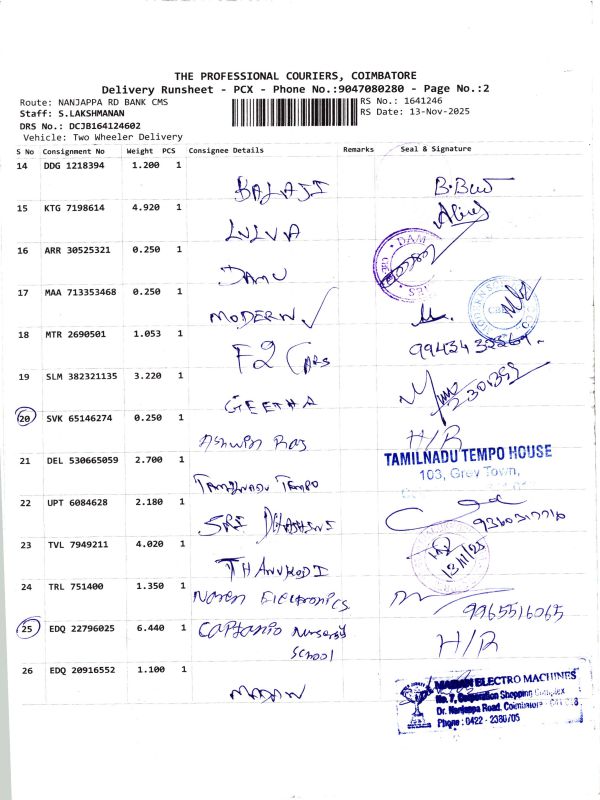 THE PROFESSIONAL COURIERS, COIMBATORE
Delivery Runsheet - PCX - Phone No.:9047080280 - Page No.:2
Route: NANJAPPA RD BANK CMS
RS No.: 1641246
Staff: S.LAKSHMANAN
RS Date: 13-Nov-2025
DRS No.: DCJB164124602
Vehicle: Two Wheeler Delivery
S No Consignment No Weight PCS Consignee Details Remarks Seal & Signature
14 DDG 1218394 1.200 1
BALAJI
15 KTG 7198614 4.920 1
LULVA
16 ARR 30525321 0.250 1
DAM
DAMU
17 MAA 713353468 0.250 1
MODERN
18 MTR 2690501 1.053 1
F2 CARS
19 SLM 382321135 3.220 1
GEETHA
20 SVK 65146274 0.250 1
Ashwin Raj
H/R
21 DEL 530665059 2.700 1
TAMILNADU TEMPO HOUSE
103, Grey Town,
TAMILNADU TEMPO
22 UPT 6084628 2.180 1
SRI
9360317716
23 TVL 7949211 4.020 1
13/11/25
THANUKODI
24 TRL 751400 1.350 1
Naren Electronics
9965516065
25 EDQ 22796025 6.440 1
Captanio Nursery
School
H/R
26 EDQ 20916552 1.100 1
MARAN ELECTRO MACHINES
No. 7, Corporation Shopping Complex
Dr. Nanjappa Road, Coimbatore - 641 018
Phone : 0422 - 2380705